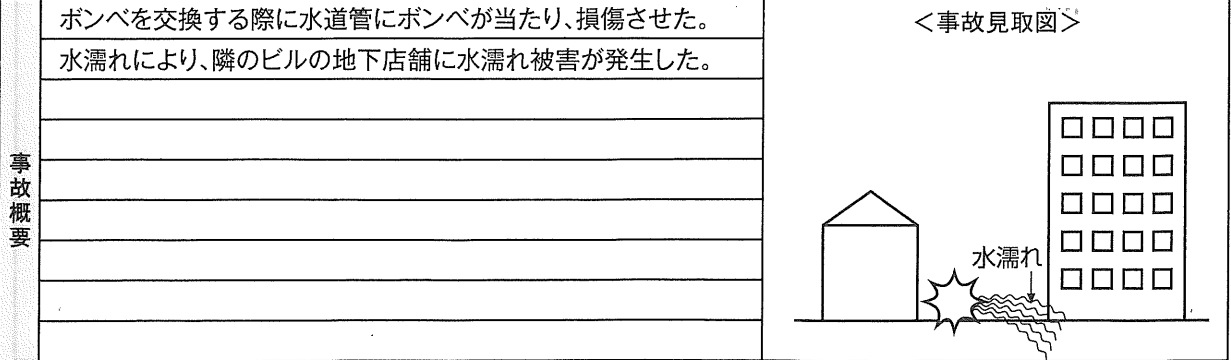 ボンベを交換する際に水道管にボンベが当たり、損傷させた。
水濡れにより、隣のビルの地下店舗に水濡れ被害が発生した。
事故概要
＜事故見取図＞
水濡れ